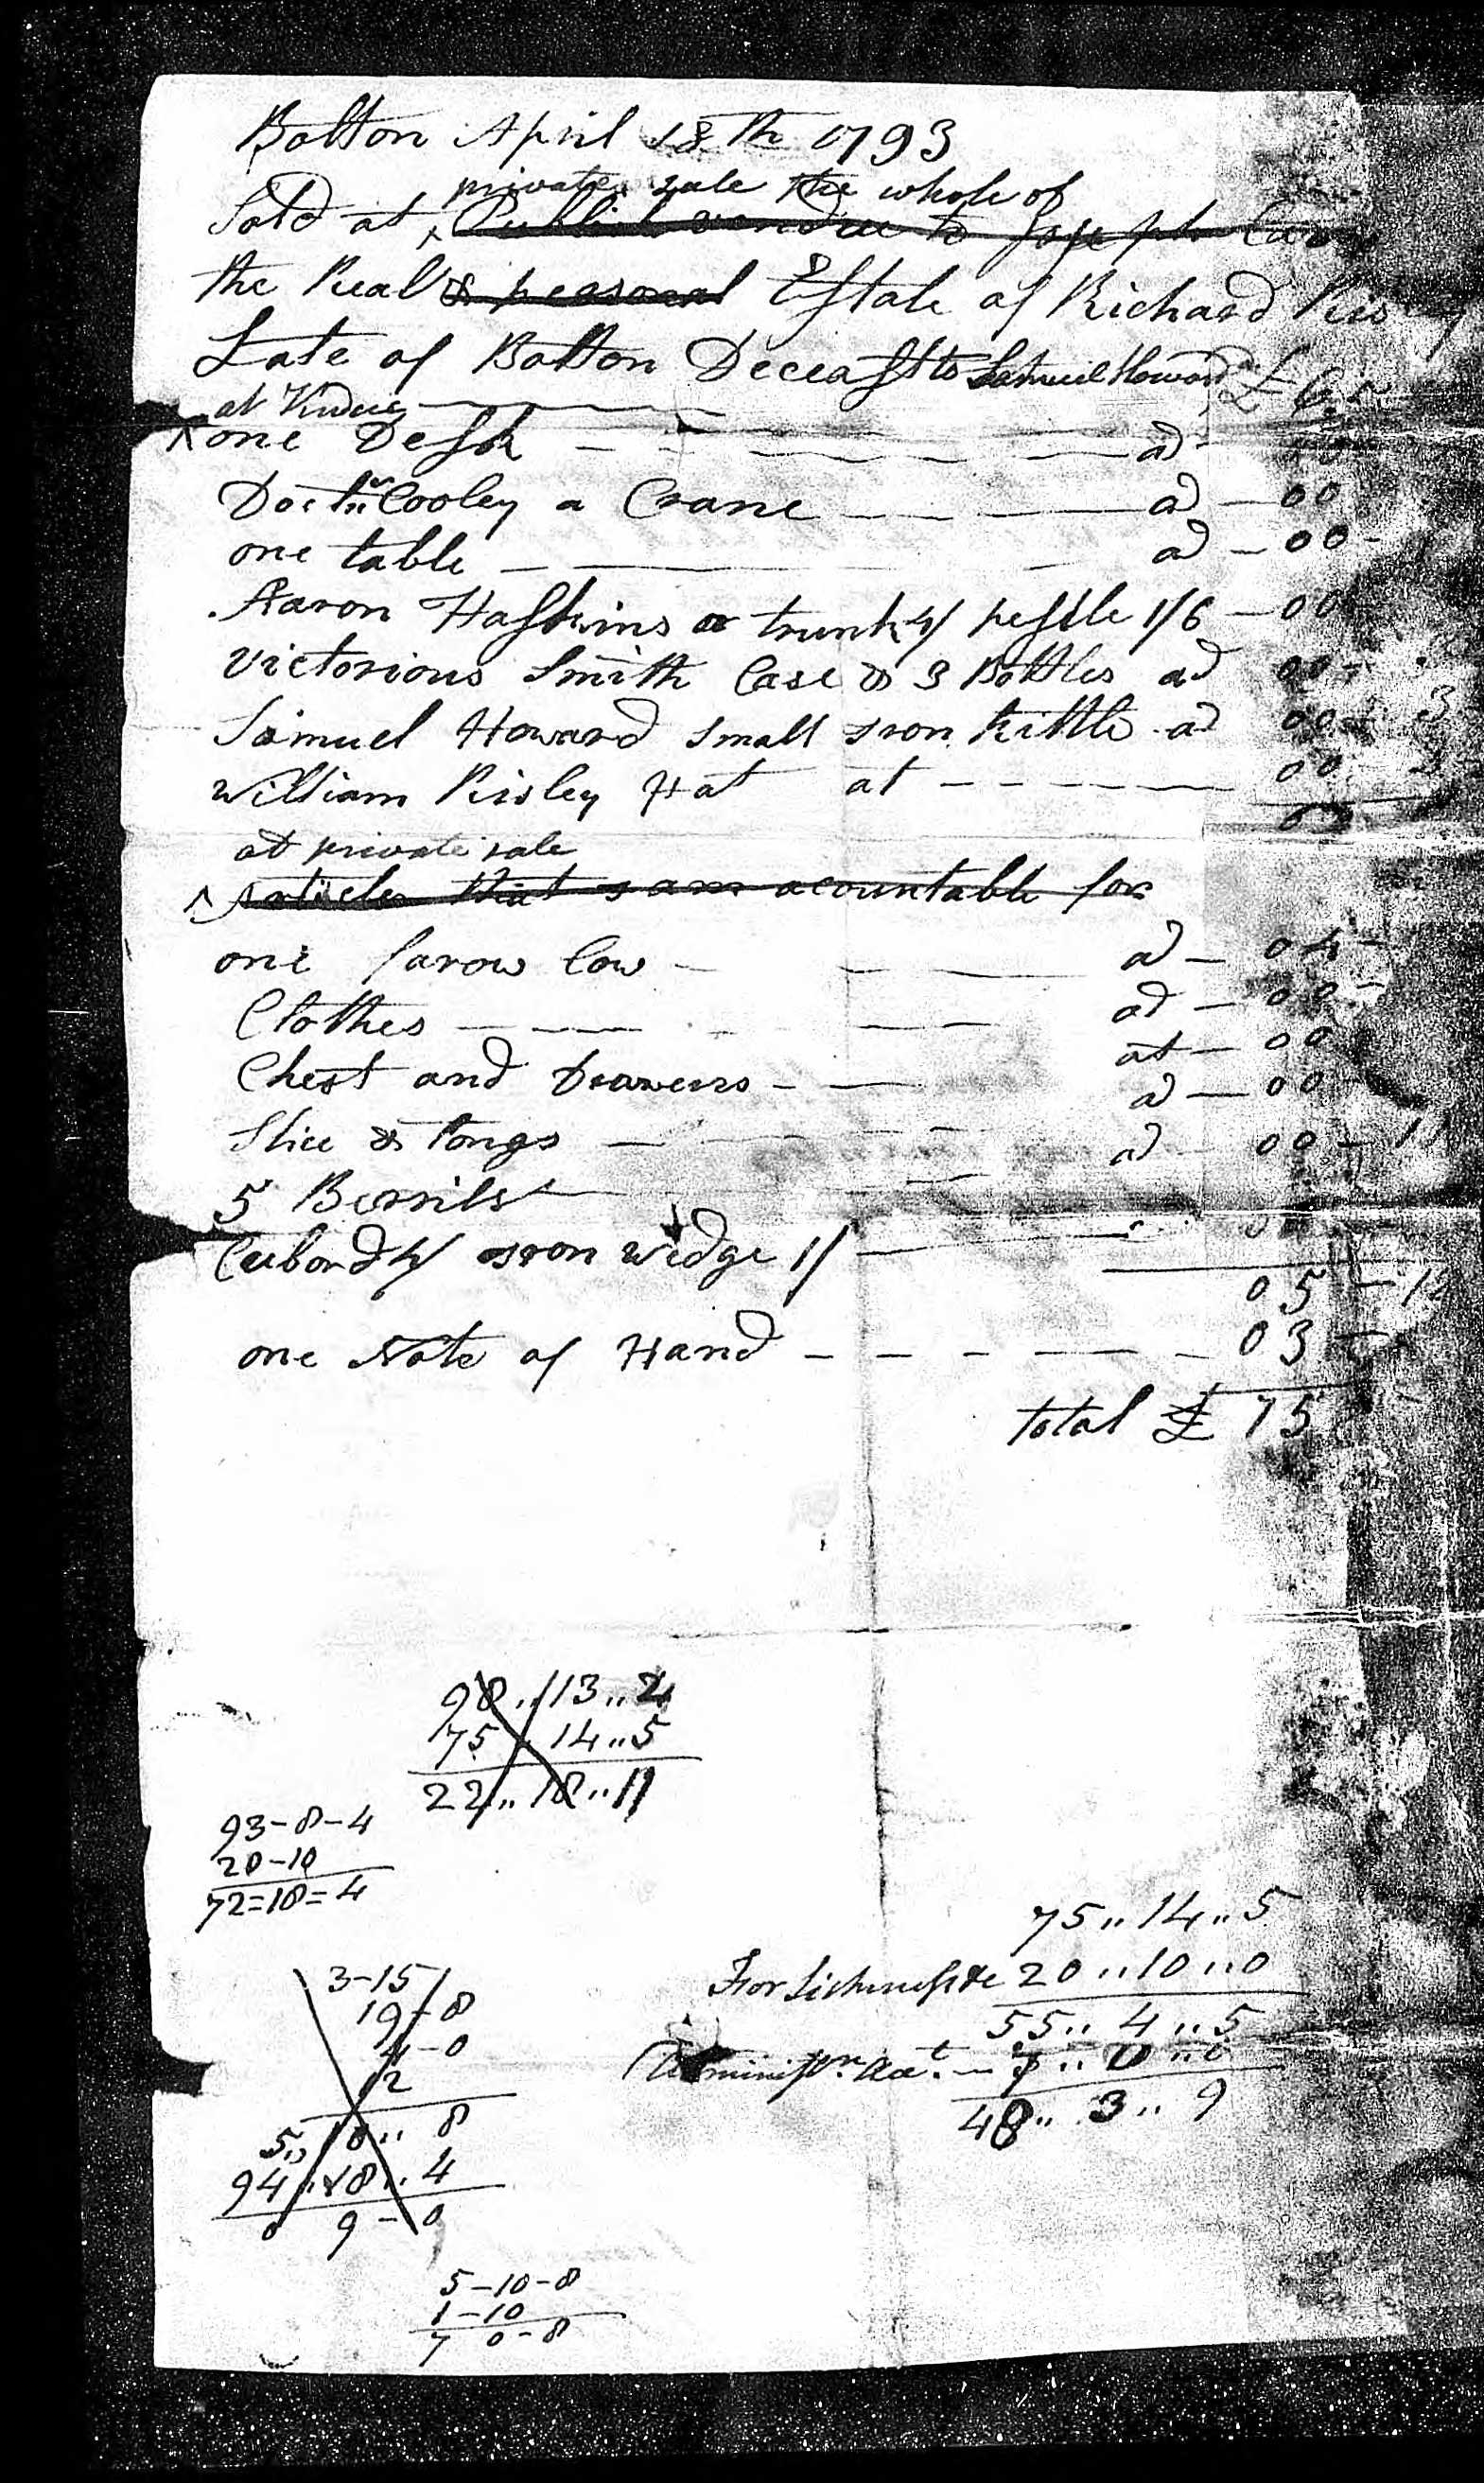 Bolton April 18th 1793
private sale the whole of
Sold at ^ Publick vendue to Joseph
the Real & peasonal Estate of Richard Risley
Late of Bolton Deceast to Samuel Howard £
at Vndue
^ one Desk ad
Doctr Cooley a Crane ad - 00
one table ad - 00 -
Aaron Haskins a trunk 4/ pestle 1/6 - 00
Victorious Smith Case & 3 Bottles ad 00 -
Samuel Howard small iron kittle ad 00 - 3
William Risley Hat at - 00
at private sale
^ Articles that I am acountable for
one farow Cow - ad - 04 -
Clothes ad - 00 -
Chest and Drawers - at - 00
Slice & tongs ad - 00
5 Berrils ad 00 - 11
Cubord 4/ iron Wedge 1/
05 - 12
one Note of Hand - 03
total £ 75
98 .. 13 .. 4
75 14 .. 5
22 .. 18 .. 11
93 - 8 - 4
20 - 10
72 = 18 = 4
75 .. 14 .. 5
For Sickness &c 20 .. 10 .. 0
55 .. 4 .. 5
Administrn. Act. - 7 .. 0 .. 8
48 .. 3 .. 9
3 - 15
19 - 8
4 - 0
12
5 .. 10 .. 8
94 .. 18 .. 4
0 9 - 0
5 - 10 - 8
1 - 10
7 0 - 8